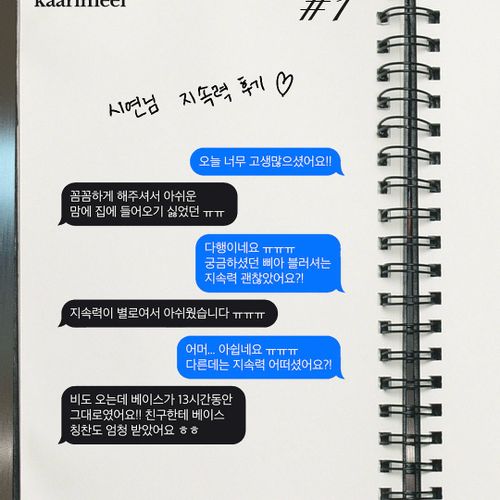 kaarimeei
#1
시연님 지속력 후기 ♡
오늘 너무 고생많으셨어요!!
꼼꼼하게 해주셔서 아쉬운
맘에 집에 들어오기 싫었던 ㅠㅠ
다행이네요 ㅠㅠㅠ
궁금하셨던 삐아 블러셔는
지속력 괜찮았어요?!
지속력이 별로여서 아쉬웠습니다 ㅠㅠㅠ
어머... 아쉽네요 ㅠㅠㅠ
다른데는 지속력 어떠셨어요?!
비도 오는데 베이스가 13시간동안
그대로였어요!! 친구한테 베이스
칭찬도 엄청 받았어요 ㅎㅎ